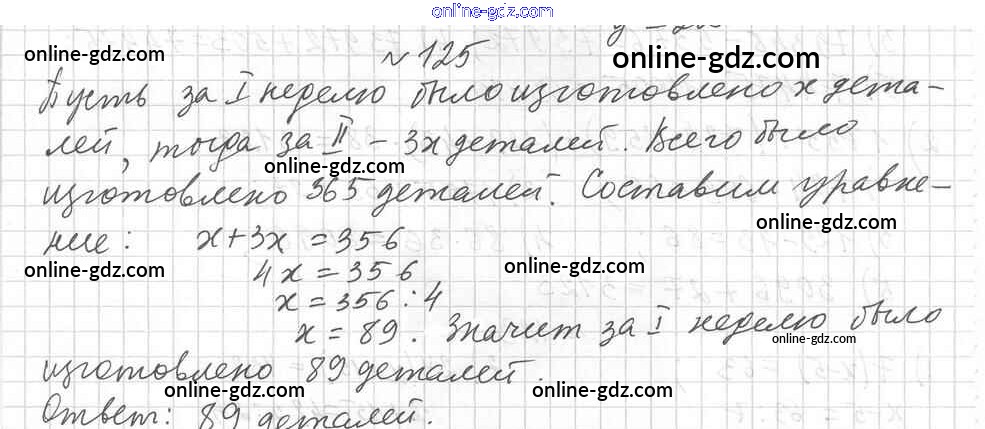 online-gdz.com
online-gdz.com № 125 online-gdz.com
Пусть за I неделю было изготовлено x дета-
лей, тогда за II - 3x деталей. Всего было
online-gdz.com
изготовлено 365 деталей. Составим уравне-
online-gdz.com
ние: x+3x=356
online-gdz.com 4x=356 online-gdz.com
x=356:4
x=89. Значит за I неделю было
online-gdz.com
изготовлено 89 деталей.
online-gdz.com online-gdz.com
Ответ: 89 деталей.